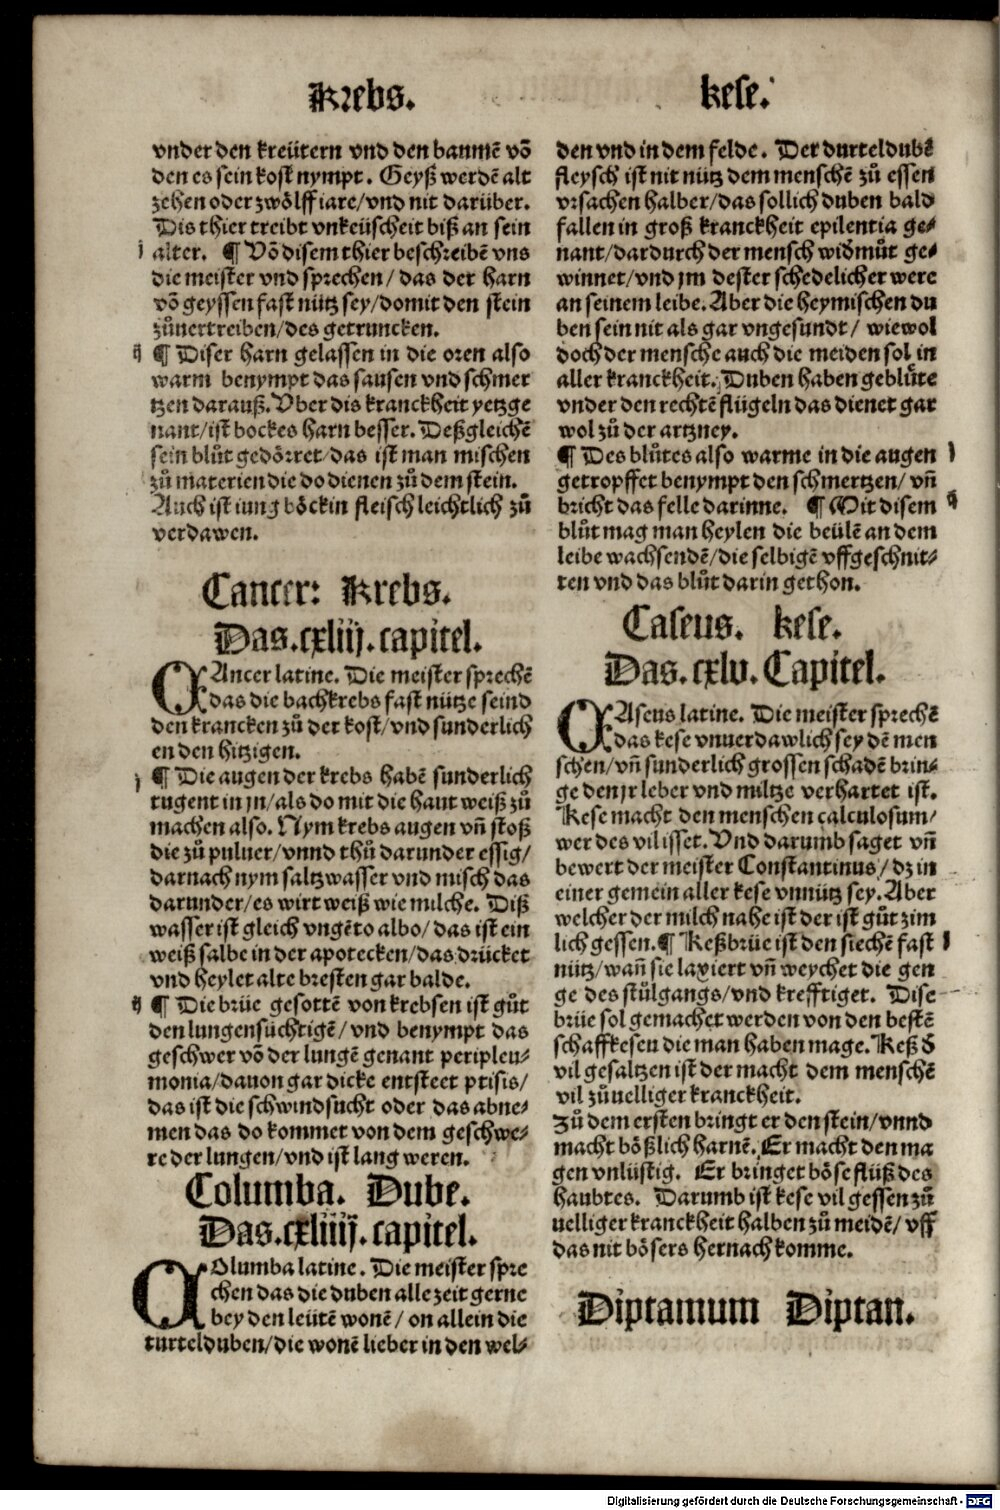 Krebs.
kese.
vnder den kreütern vnd den baumē võ
den es sein kost nympt. Geyß werdē alt
zehen oder zwölff iare/vnd nit darüber.
Dis thier treibt vnkeüscheit biß an sein
alter. ¶ Võ disem thier beschreibē vns
die meister vnd sprechen/ das der harn
võ geyssen fast nütz sey/domit den stein
zůuertreiben/des getruncken.
¶ Diser harn gelassen in die oren also
warm benympt das sausen vnd schmer
tzen darauß. Vber dis kranckheit yetzge
nant/ist bockes harn besser. Deßgleichē
sein blůt gedörret/das ist man mischen
zů materien die do dienen zů dem stein.
Auch ist iung böckin fleisch leichtlich zů
verdawen.
Cancer: Krebs.
Das.cxliij.capitel.
CAncer latine. Die meister sprechē
das die bachkrebs fast nütze seind
den krancken zů der kost/vnd sunderlich
en den hitzigen.
¶ Die augen der krebs habē sunderlich
tugent in jn/als do mit die haut weiß zů
machen also. Nym krebs augen vñ stoß
die zů puluer/vnnd thů darunder essig/
darnach nym saltzwasser vnd misch das
darunder/es wirt weiß wie milche. Diß
wasser ist gleich vngēto albo/das ist ein
weiß salbe in der apotecken/das drücket
vnd heylet alte bresten gar balde.
¶ Die brüe gesottē von krebsen ist gůt
den lungensüchtigē/vnd benympt das
geschwer võ der lungē genant peripleu-
monia/dauon gar dicke entsteet ptisis/
das ist die schwindsucht oder das abne-
men das do kommet von dem geschwe-
re der lungen/vnd ist lang weren.
Columba. Dube.
Das.cxliiij.capitel.
COlumba latine. Die meister spre
chen das die duben alle zeit gerne
bey den leütē wonē/ on allein die
turtelduben/die wonē lieber in den wel-
den vnd in dem felde. Der durteldubē
fleysch ist nit nütz dem menschē zů essen
vrsachen halber/das sollich duben bald
fallen in groß kranckheit epilentia ge-
nant/dardurch der mensch widmůt ge-
winnet/vnd jm dester schedelicher were
an seinem leibe. Aber die heymischen du
ben sein nit als gar vngesundt/ wiewol
doch der mensche auch die meiden sol in
aller kranckheit. Duben haben geblůte
vnder den rechtē flügeln das dienet gar
wol zů der artzney.
¶ Des blůtes also warme in die augen
getropffet benympt den schmertzen/ vñ
bricht das felle darinne. ¶ Mit disem
blůt mag man heylen die beülē an dem
leibe wachsendē/die selbigē vffgeschnit-
ten vnd das blůt darin gethon.
Caseus. kese.
Das.cxlv.Capitel.
CAseus latine. Die meister sprechē
das kese vnuerdawlich sey dē men
schen/vñ sunderlich grossen schadē brin-
ge den jr leber vnd miltze verhartet ist.
Kese macht den menschen calculosum/
wer des vil isset. Vnd darumb saget vñ
bewert der meister Constantinus/ dz in
einer gemein aller kese vnnütz sey. Aber
welcher der milch nahe ist der ist gůt zim
lich gessen. ¶ Keßbrüe ist den siechē fast
nütz/wañ sie laxiert vñ weychet die gen
ge des stůlgangs/vnd krefftiget. Dise
brüe sol gemachet werden von den bestē
schaffkesen die man haben mage. Keß d̄
vil gesaltzen ist der macht dem menschē
vil zůuelliger kranckheit.
Zů dem ersten bringt er den stein/vnnd
macht bößlich harnē. Er macht den ma
gen vnlüstig. Er bringet böse flüß des
haubtes. Darumb ist kese vil gessen zů
uelliger kranckheit halben zů meidē/ vff
das nit bösers hernach komme.
Diptamum Diptan.
Digitalisierung gefördert durch die Deutsche Forschungsgemeinschaft - DFG